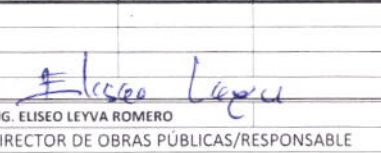 Eliseo Leyva
NG. ELISEO LEYVA ROMERO
DIRECTOR DE OBRAS PÚBLICAS/RESPONSABLE